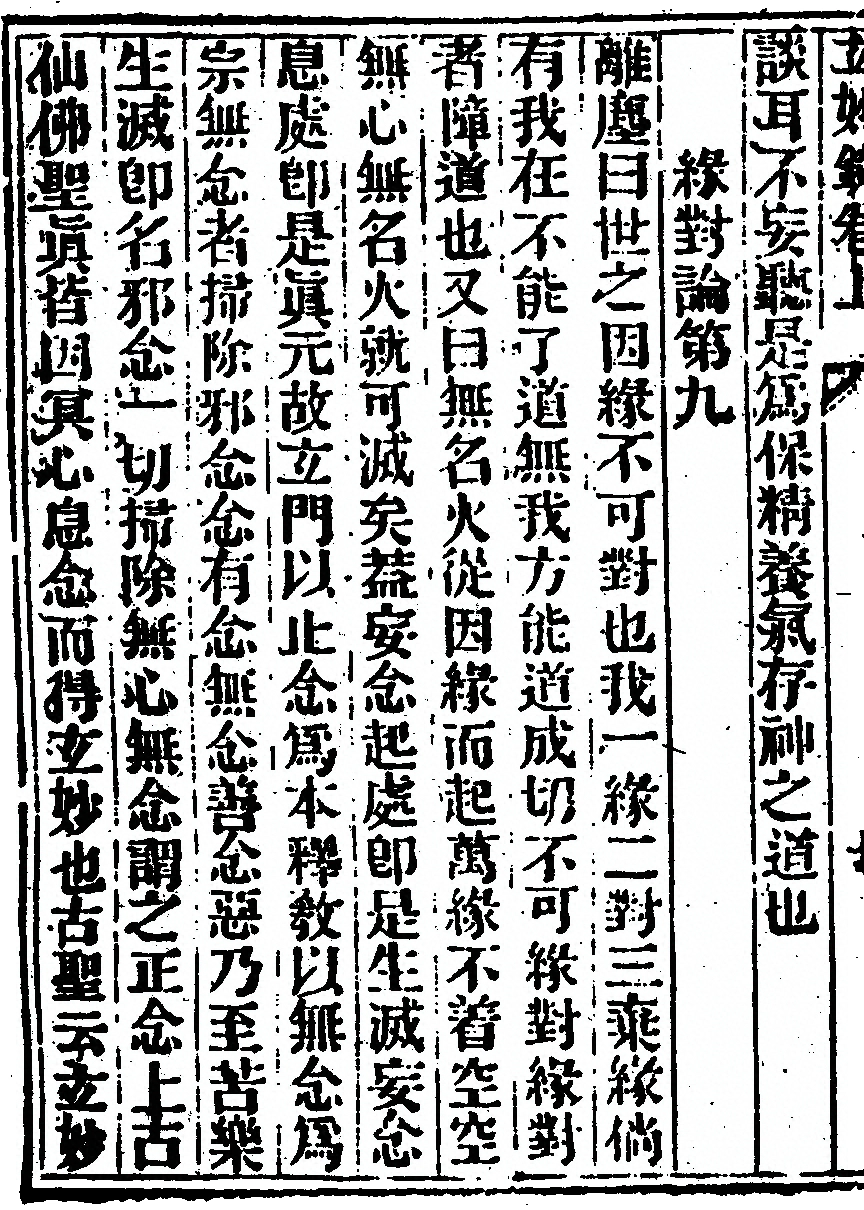 談耳不妄聽是爲保精養氣存神之道也
緣對論第九
離塵曰世之因緣不可對也我一緣二對三乘緣倘
有我在不能了道無我方能道成切不可緣對緣對
者障道也又曰無名火從因緣而起萬緣不着空空
無心無名火就可滅矣葢妄念起處卽是生滅妄念
息處卽是眞元故立門以止念爲本釋敎以無念爲
宗無念者掃除邪念念有念無念善念惡乃至苦樂
生滅卽名邪念一切掃除無心無念謂之正念上古
仙佛聖眞皆因冥心息念而得玄妙也古聖云玄妙